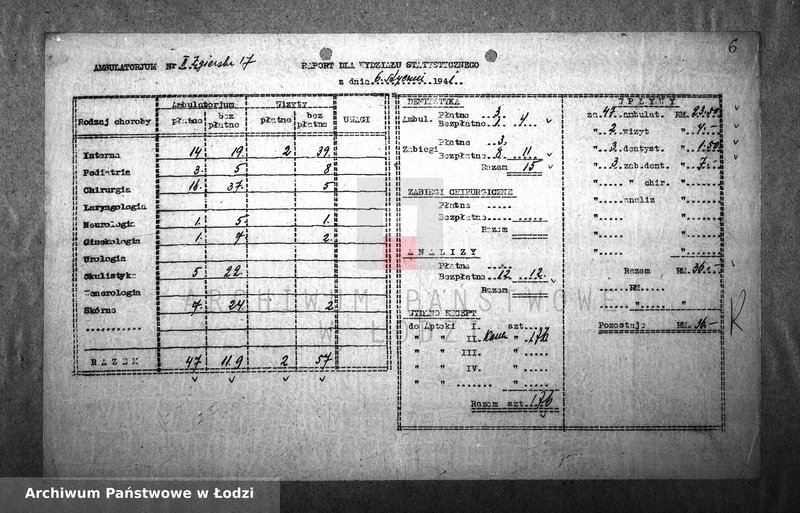 6
AMBULATORJUM Nr II Zgierska 17
RAPORT DLA WYDZIAŁU STATYSTYCZNEGO
z dnia 6. stycznia 1941.
Rodzaj choroby Ambulatorjum Wizyty UWAGI
płatne bez płatne płatne bez płatne
Interna 14 19. 2 39.
Pediatria 3. 5 8
Chirurgia 16. 37. 5
Laryngologia
Neurologia 1. 5. 1.
Ginekologia 1. 7. 2.
Urologia
Okulistyka 5 22.
Wenerologia
Skórne 7. 24 2
RAZEM 47 119 2 57
DENTYSTYKA
Ambul. Płatne 3.
Bezpłatne 1. 4
Zabiegi Płatne 3.
Bezpłatne 8. 11
Razem 15
ZABIEGI CHIRURGICZNE
Płatne
Bezpłatne
Razem
ANALIZY
Płatne
Bezpłatne 12 12.
Razem
WYDANO RECEPT
do Apteki I. szt.
" " II. "
" " III. "
" " IV. "
" " "
Razem szt. 176
WPŁYWY
za 47 ambulat. RM. 23.50
" 2. wizyt " 4.-
" 3. dentyst. " 1.50
" 3. zab.dent. " 7.-
" " chir. "
" analiz "
" "
" "
" "
Razem RM. 36.-
RM.
"
Pozostaje RM. 36.-
ARCHIWUM PAŃSTWOWE
W ŁODZI
Archiwum Państwowe w Łodzi